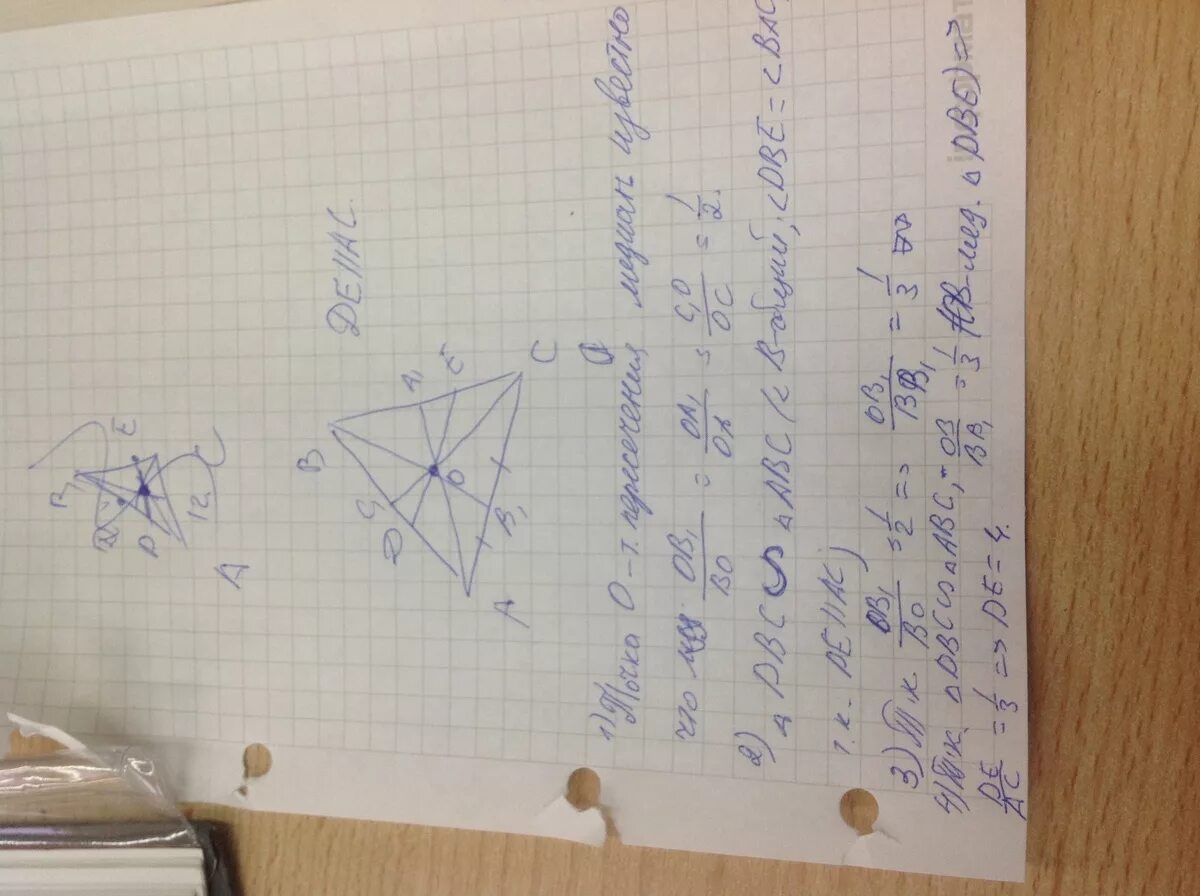 B
E
D
12
C
A
DE||AC
B
C₁
D
A₁
E
O
A
B₁
C
1) Точка O – т. пересечения медиан известно
что OB₁/BO = OA₁/OA = C₁O/OC = 1/2.
2) △ DBC ∽ △ABC (∠B-общий, ∠DBE = ∠BAC,
т.к. DE||AC)
3) Т.к. OB₁/BO = 1/2 => OB₁/BB₁ = 1/3
4) Т.к. △DBC ∽ △ABC, OB/BB₁ = 1/3 (OB-мед. △DBE) =>
DE/AC = 1/3 => DE = 4.